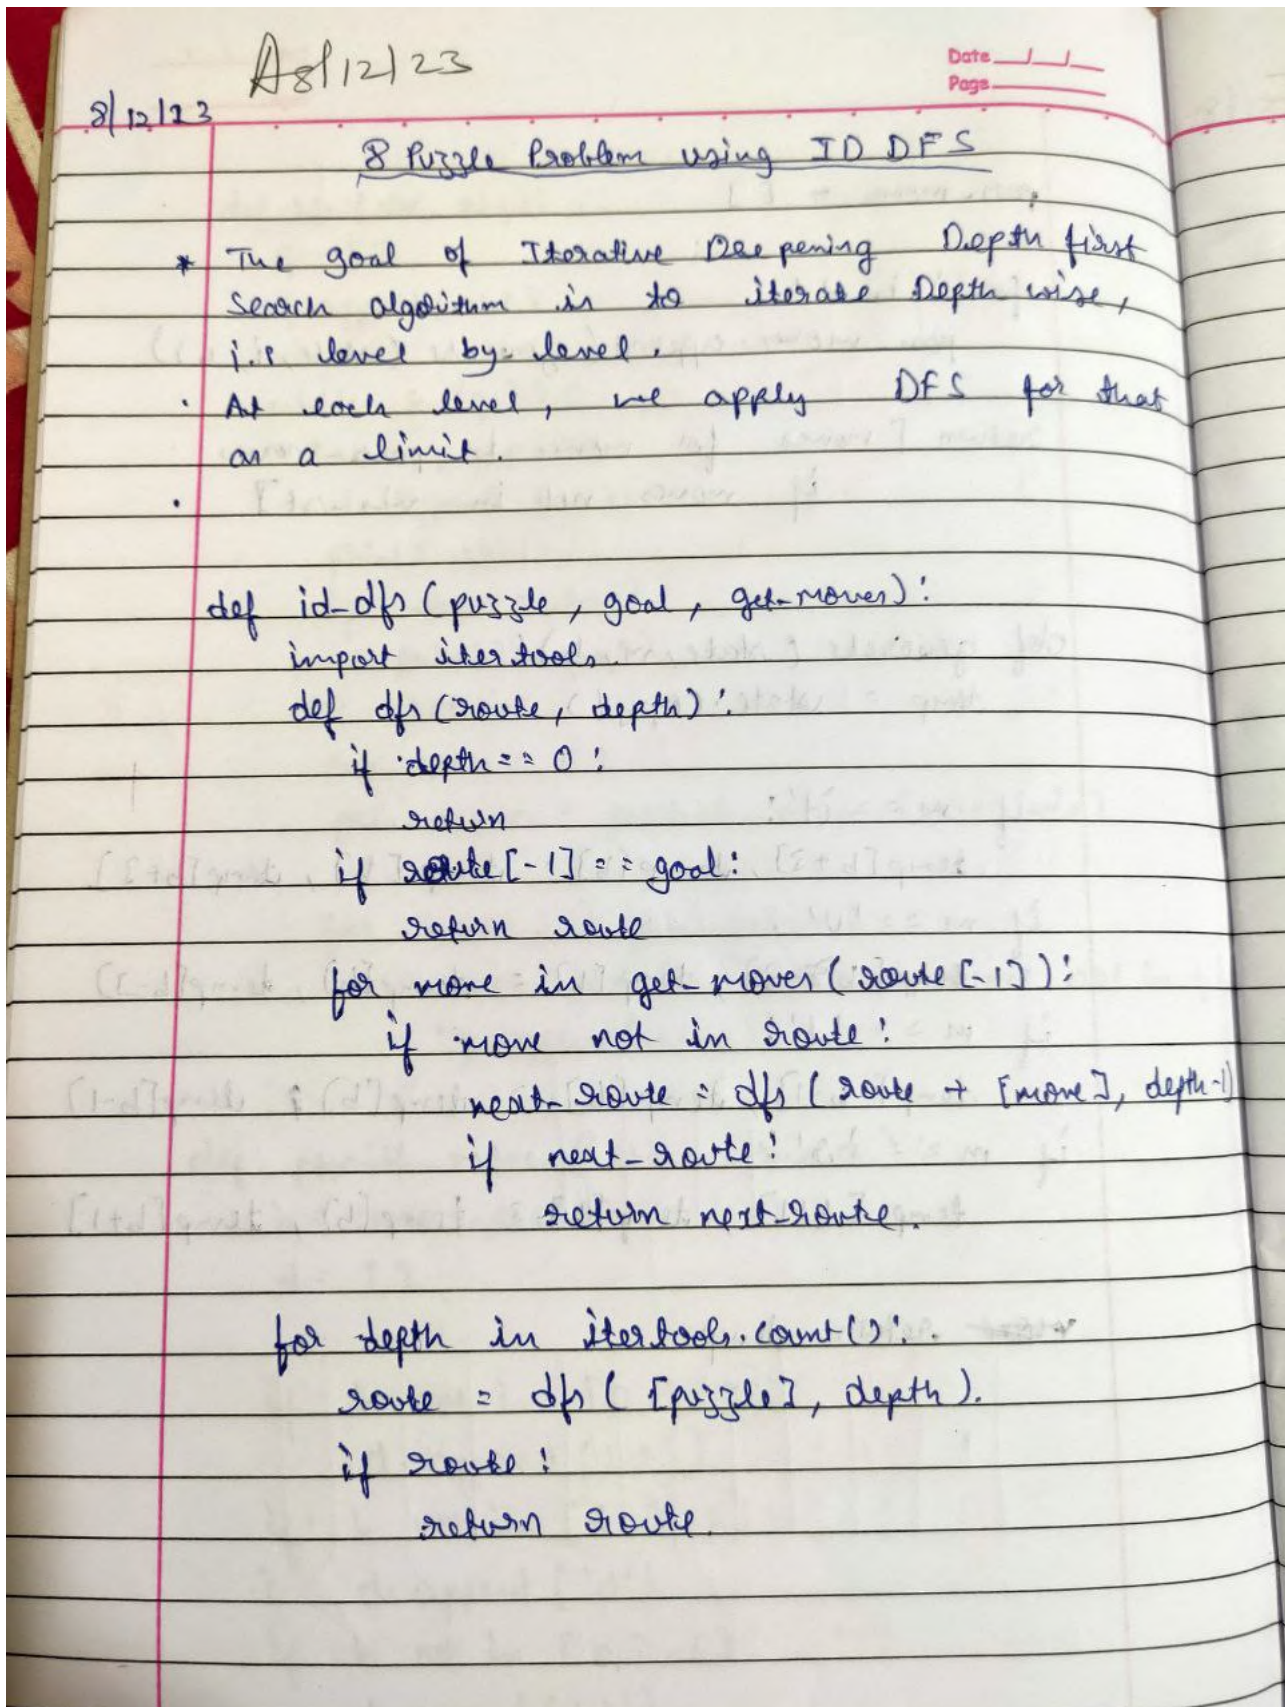 A8/12/23
Date
Page
8/12/23
8 Puzzle Problem using ID DFS
* The goal of Iterative Deepening Depth first
Search algorithm is to iterate Depth wise,
i.e level by level.
· At each level, we apply DFS for that
as a limit.
·
def id-dfs (puzzle, goal, get-moves):
import itertools.
def dfs (route, depth):
if depth == 0:
return
if route[-1] == goal:
return route
for move in get-moves (route [-1]):
if move not in route:
next-route = dfs (route + [move], depth-1)
if next-route:
return next-route.
for depth in itertools.count():
route = dfs ([puzzle], depth).
if route:
return route.